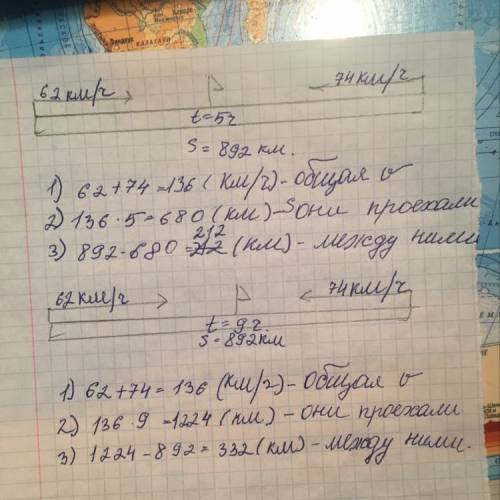 62 км/ч 74 км/ч
t=5ч
S = 892 км.
1) 62+74=136 (км/ч)-общая v
2) 136·5=680 (км)-S они проехали
212
3) 892-680=212 (км)-между ними
62 км/ч 74 км/ч
t=9ч.
S=892км
1) 62+74=136 (км/ч)-общая v
2) 136·9=1224 (км)-они проехали
3) 1224-892=332 (км)-между ними.